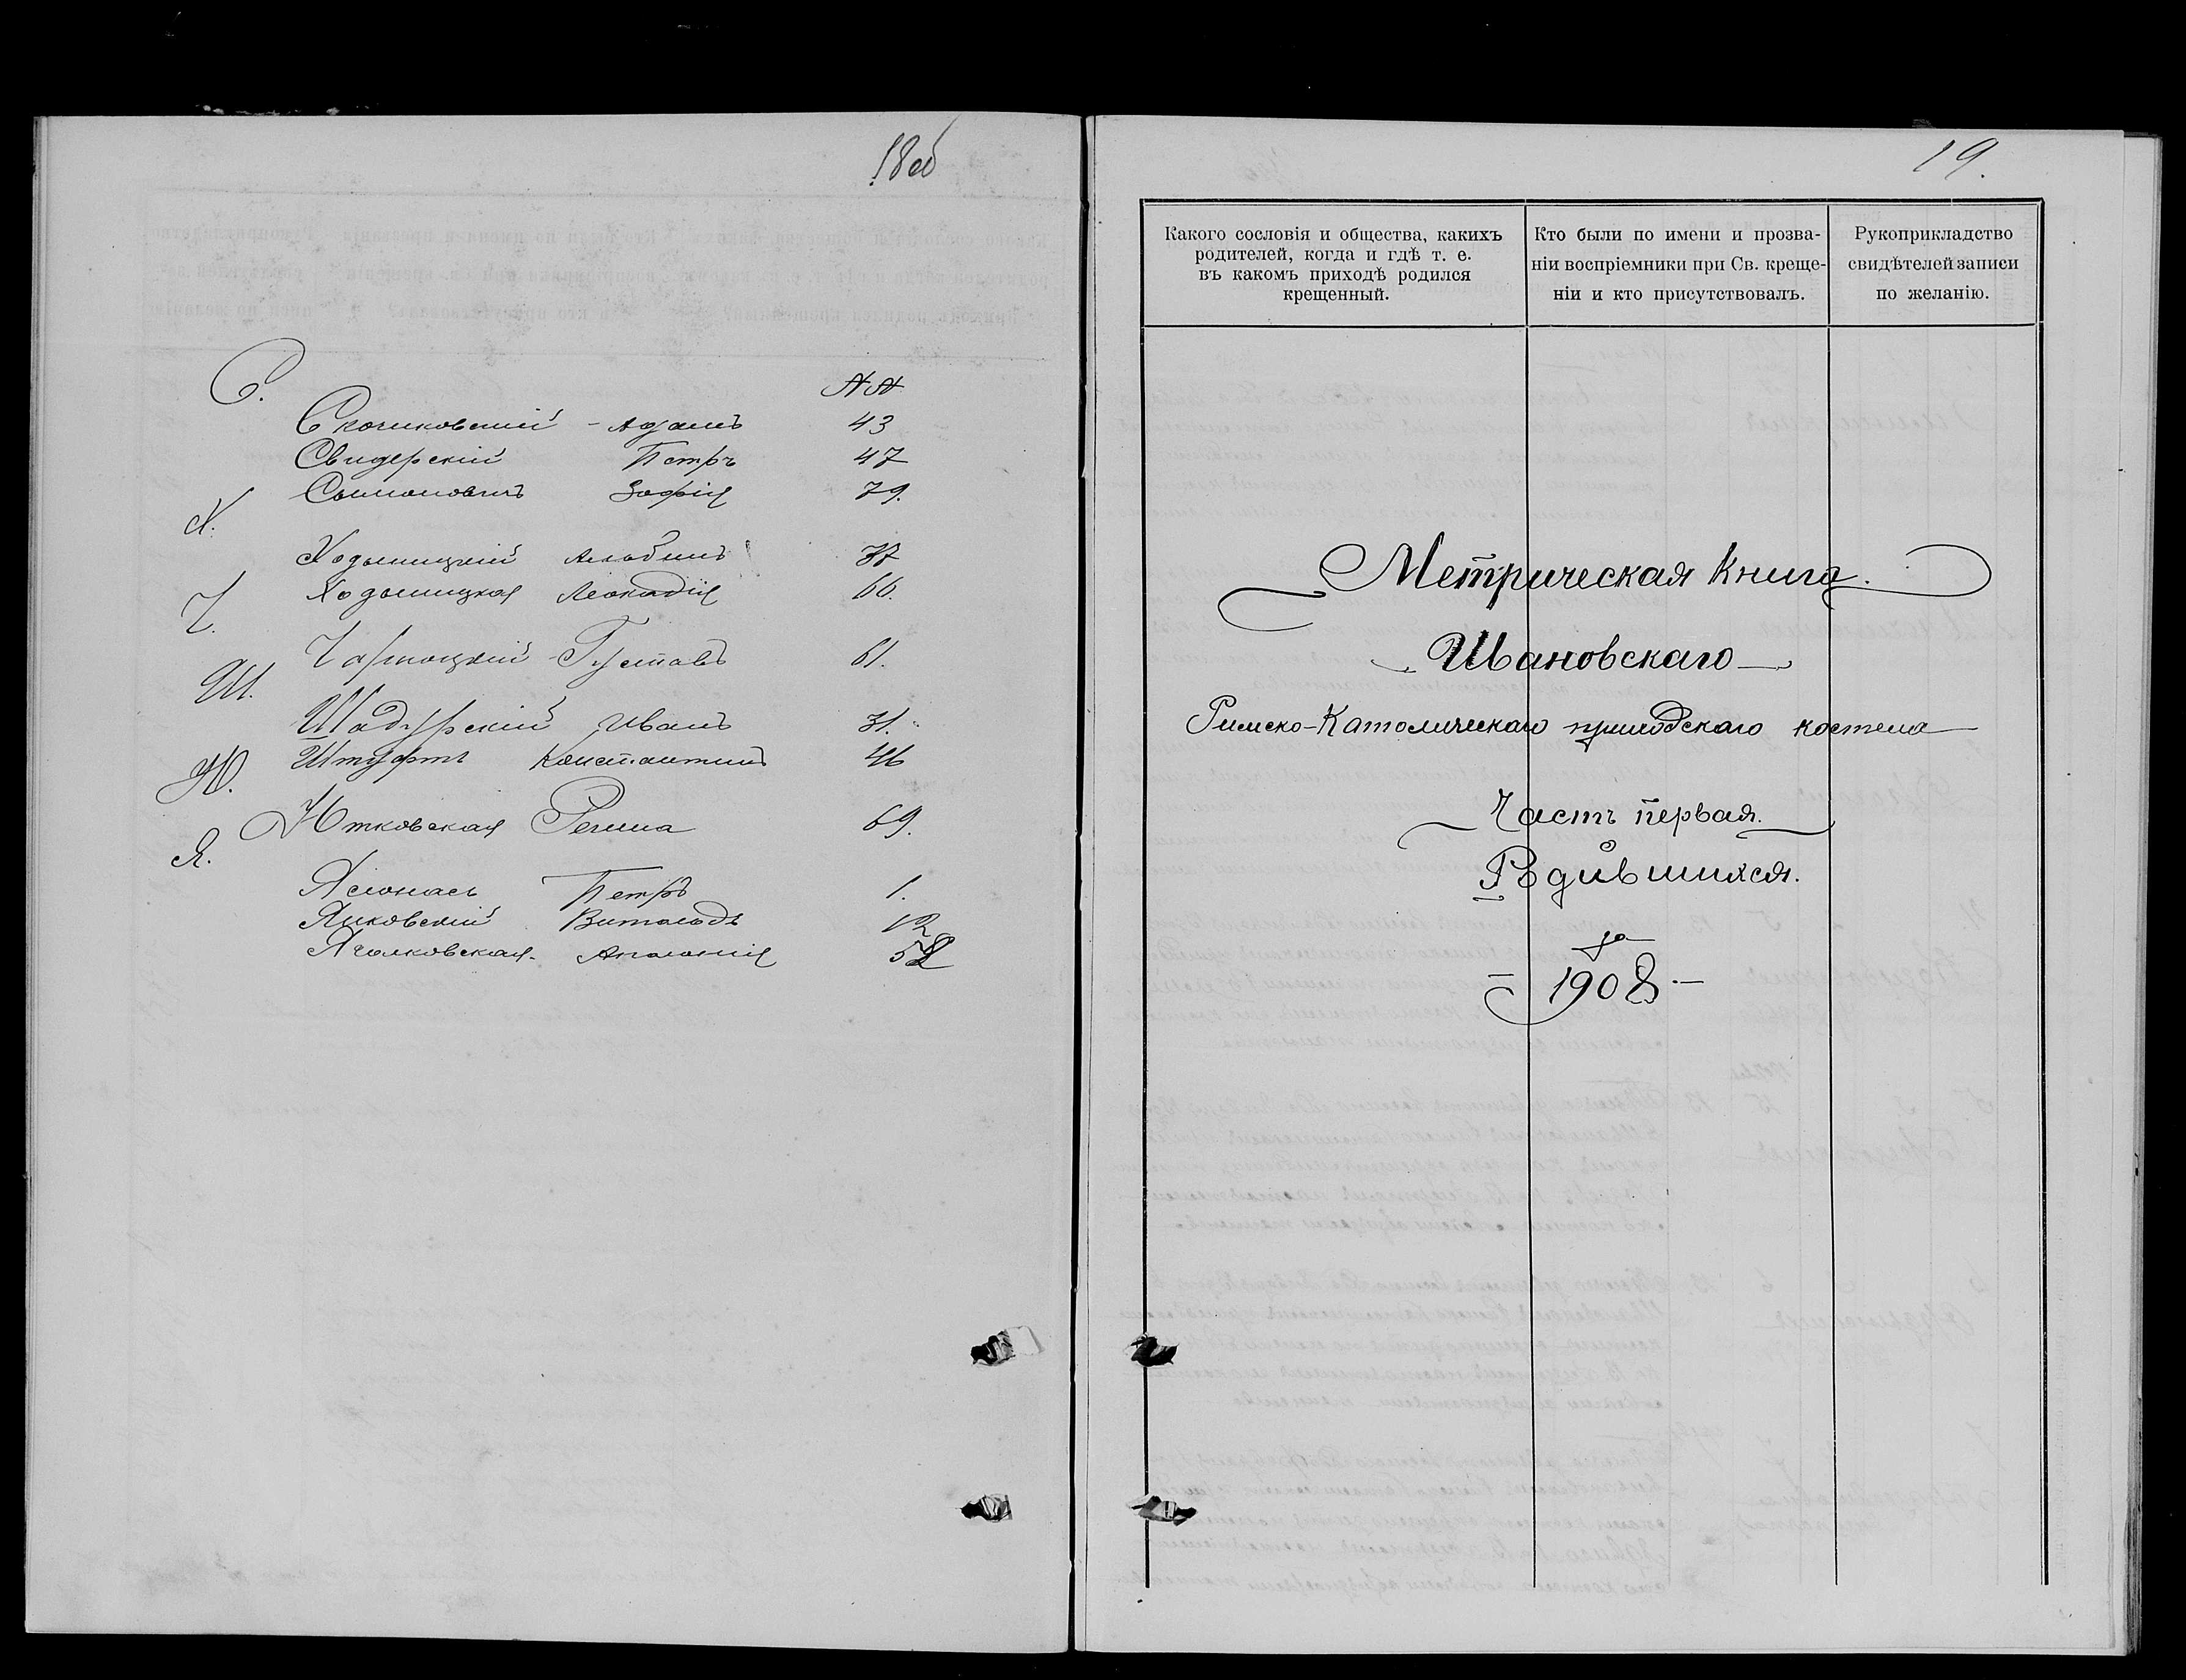 18об
С.
№№
Скочиковскій - Адамъ 43
Свидерскій Петръ 47
Сымоновичъ Зофія 79.
Х.
Ходыницкій Альбинъ 37
Ходыницкая Леокадія 66.
Ч.
Чарноцкій Густавъ 61.
Ш.
Шадурскій Иванъ 31.
Штуфтъ Константинъ 46
Ю.
Ютковская Регина 69.
Я.
Петръ 1.
Янковскій Витольдъ 12
Аполонія 52
19.
Какого сословія и общества, какихъ
родителей, когда и гдѣ т. е.
въ какомъ приходѣ родился
крещенный.
Кто были по имени и прозва-
ніи воспріемники при Св. креще-
ніи и кто присутствовалъ.
Рукоприкладство
свидѣтелей записи
по желанію.
Метрическая книга.
Швановскаго
Римско-Католическаго приходскаго костела
Часть первая.
Родившихся.
за
1908.